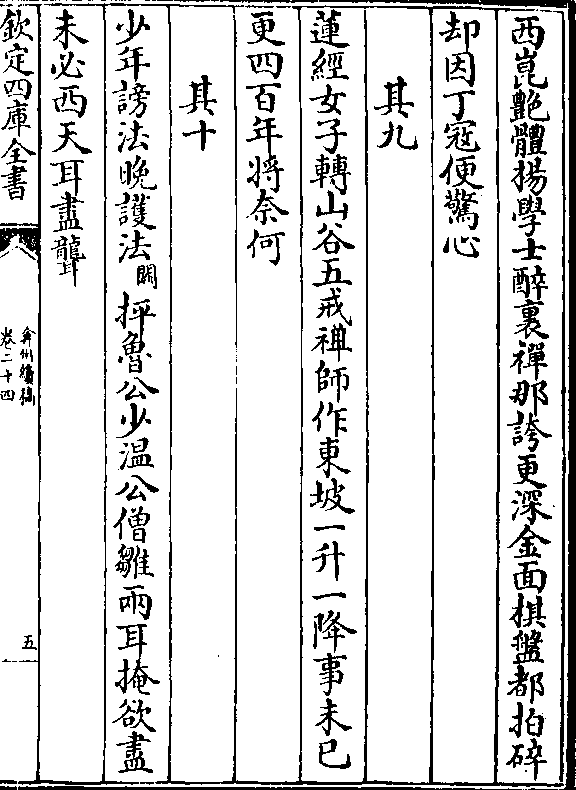 西崑艷體揚學士醉裏禪那誇更深金面棋盤都拍碎
却因丁冦便驚心
其九
蓮經女子轉山谷五戒禪師作東坡一升一降事未已
更四百年將奈何
其十
少年謗法晚護法闕抨魯公少温公僧雛兩耳掩欲盡
未必西天耳盡聾
欽定四庫全書
弇州續稿
卷二十四
五